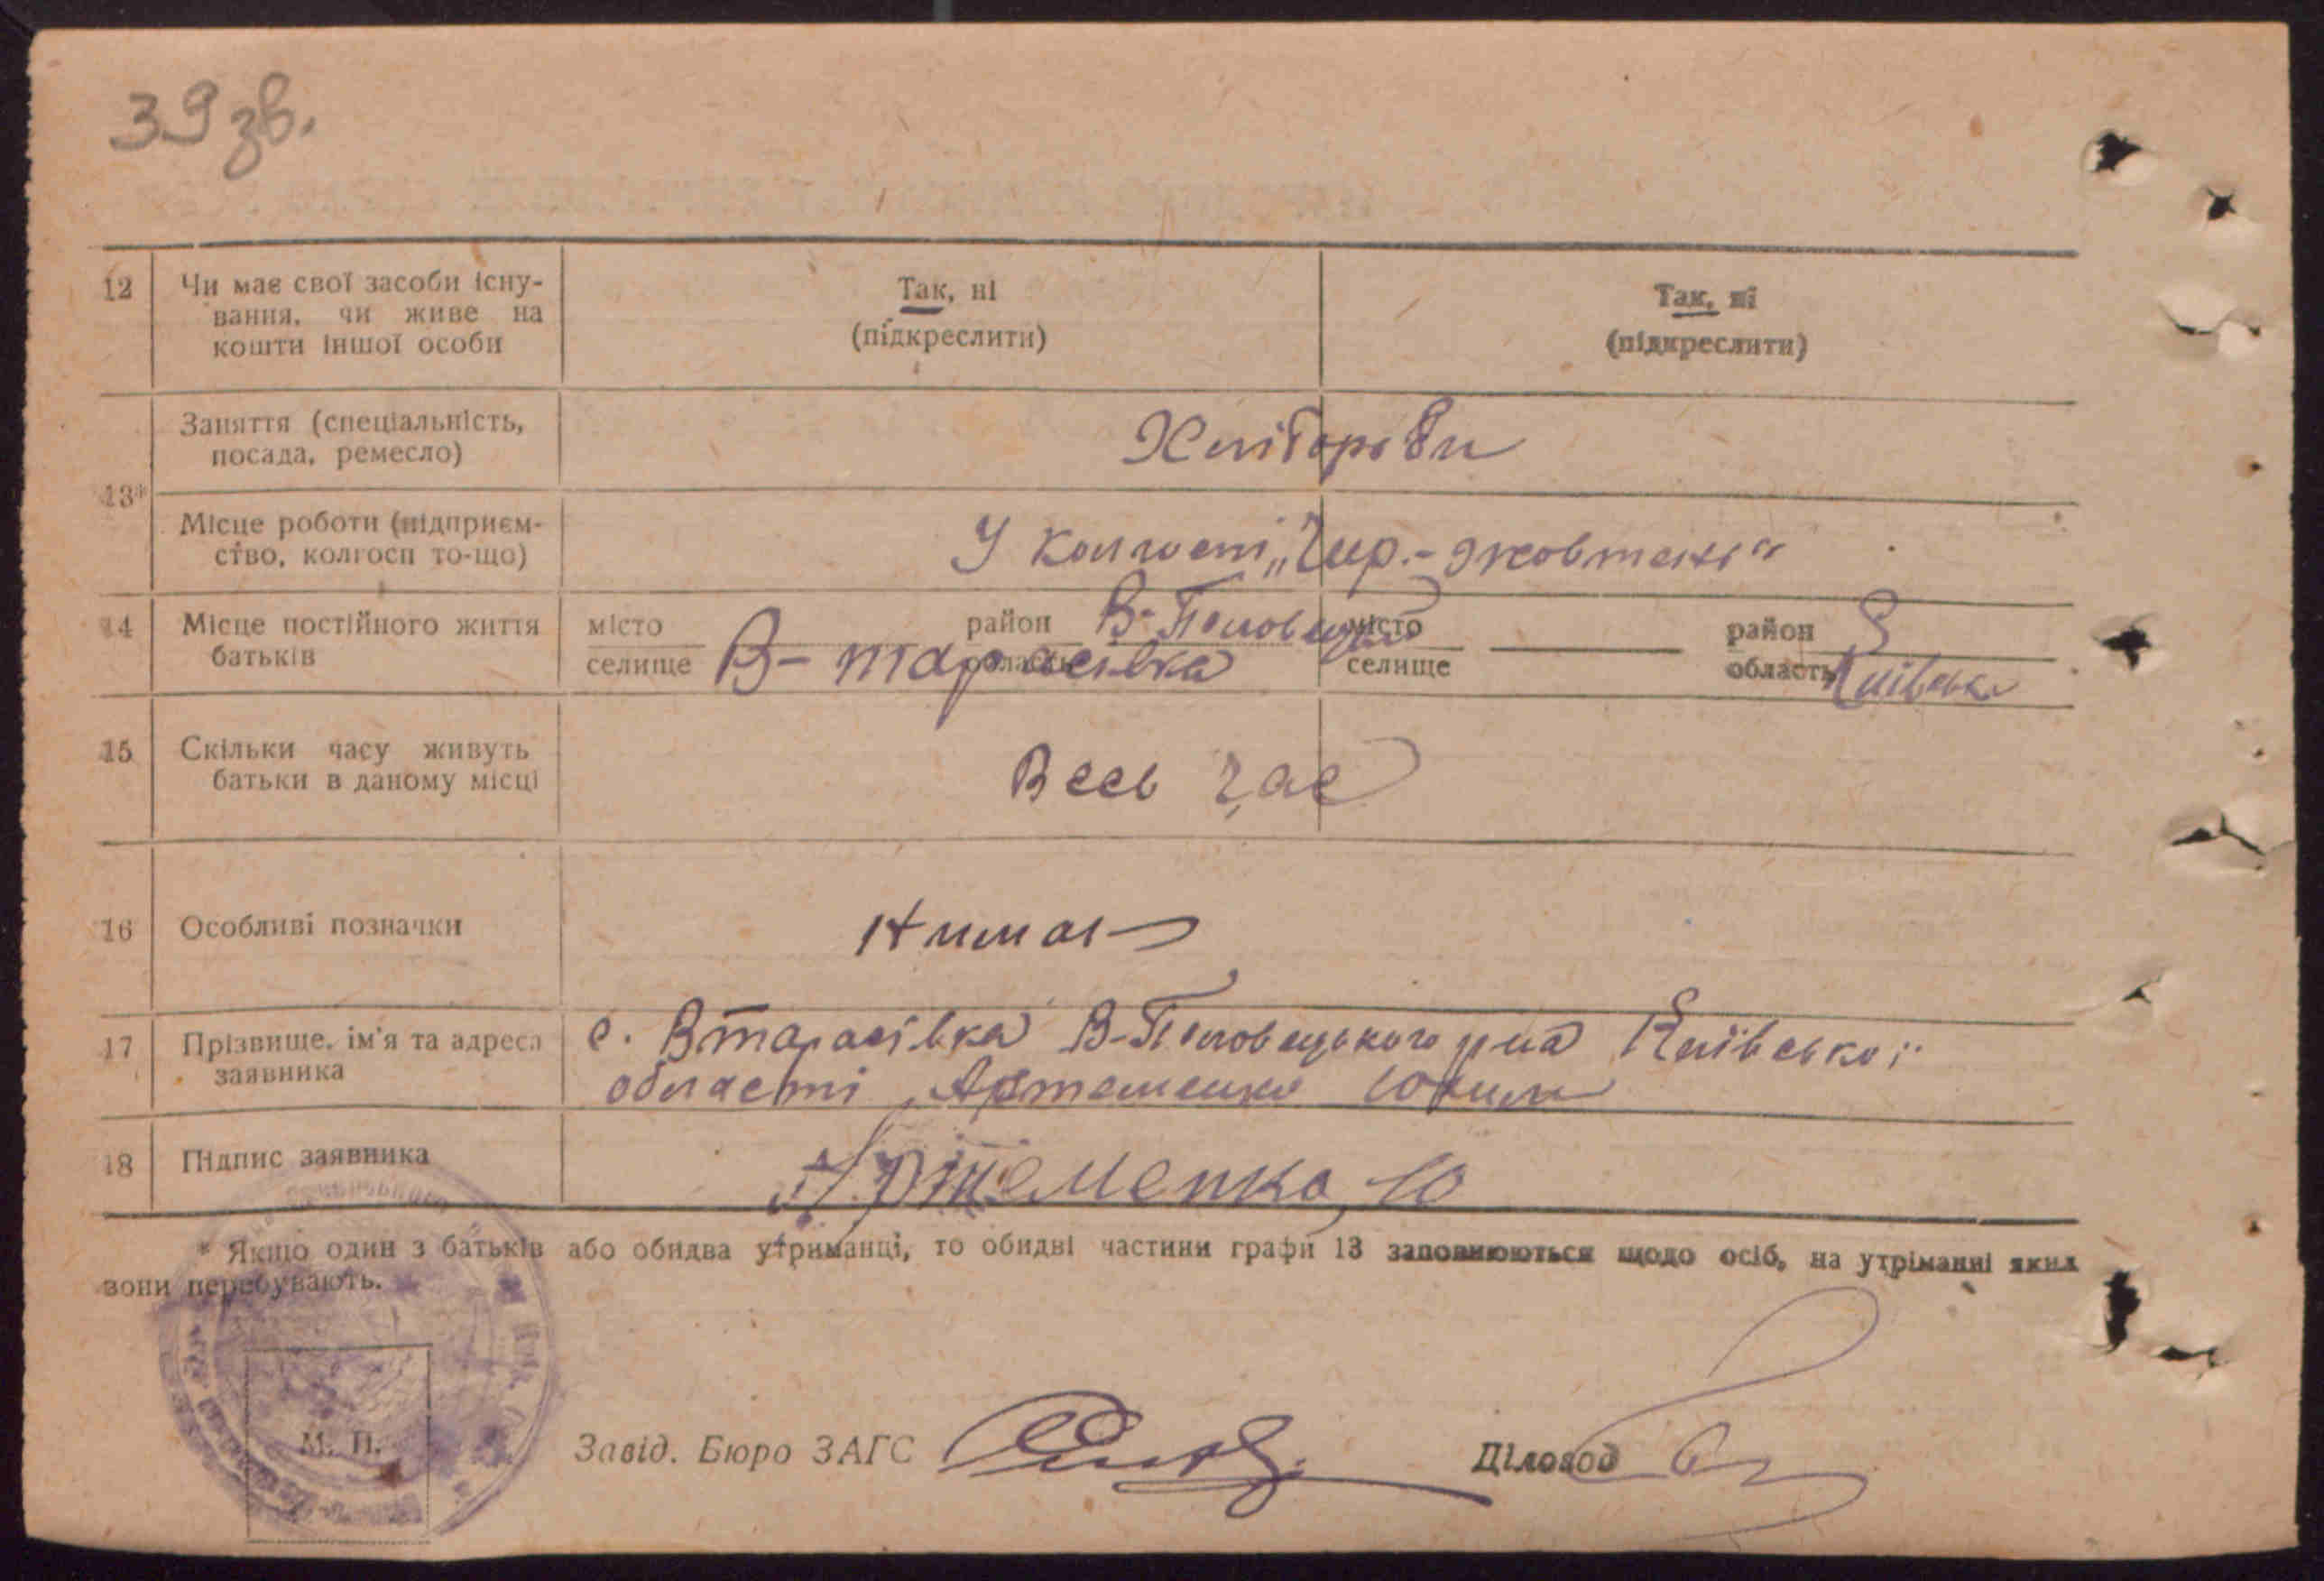 39 зв.
12 Чи має свої засоби існу- Так, ні Так, ні
вання, чи живе на (підкреслити) (підкреслити)
кошти іншої особи
Заняття (спеціальність, Хлібороби
посада, ремесло)
13*
Місце роботи (підприєм- У колгоспі „Чер.-жовтень“
ство, колгосп то-що)
14 Місце постійного життя місто район В-Половецький місто район
батьків селище В-тарасівка область селище область Київська
15 Скільки часу живуть Весь час
батьки в даному місці
16 Особливі позначки Нимає
17 Прізвище, ім'я та адреса с. Втарасівка В-Половецького р-на Київської
заявника області Артеменко Юхим
18 Підпис заявника Артеменко, Ю
* Якщо один з батьків або обидва утриманці, то обидві частини графи 13 заповнюються щодо осіб, на утріманні яких
вони перебувають.
М. П.
Завід. Бюро ЗАГС Діловод